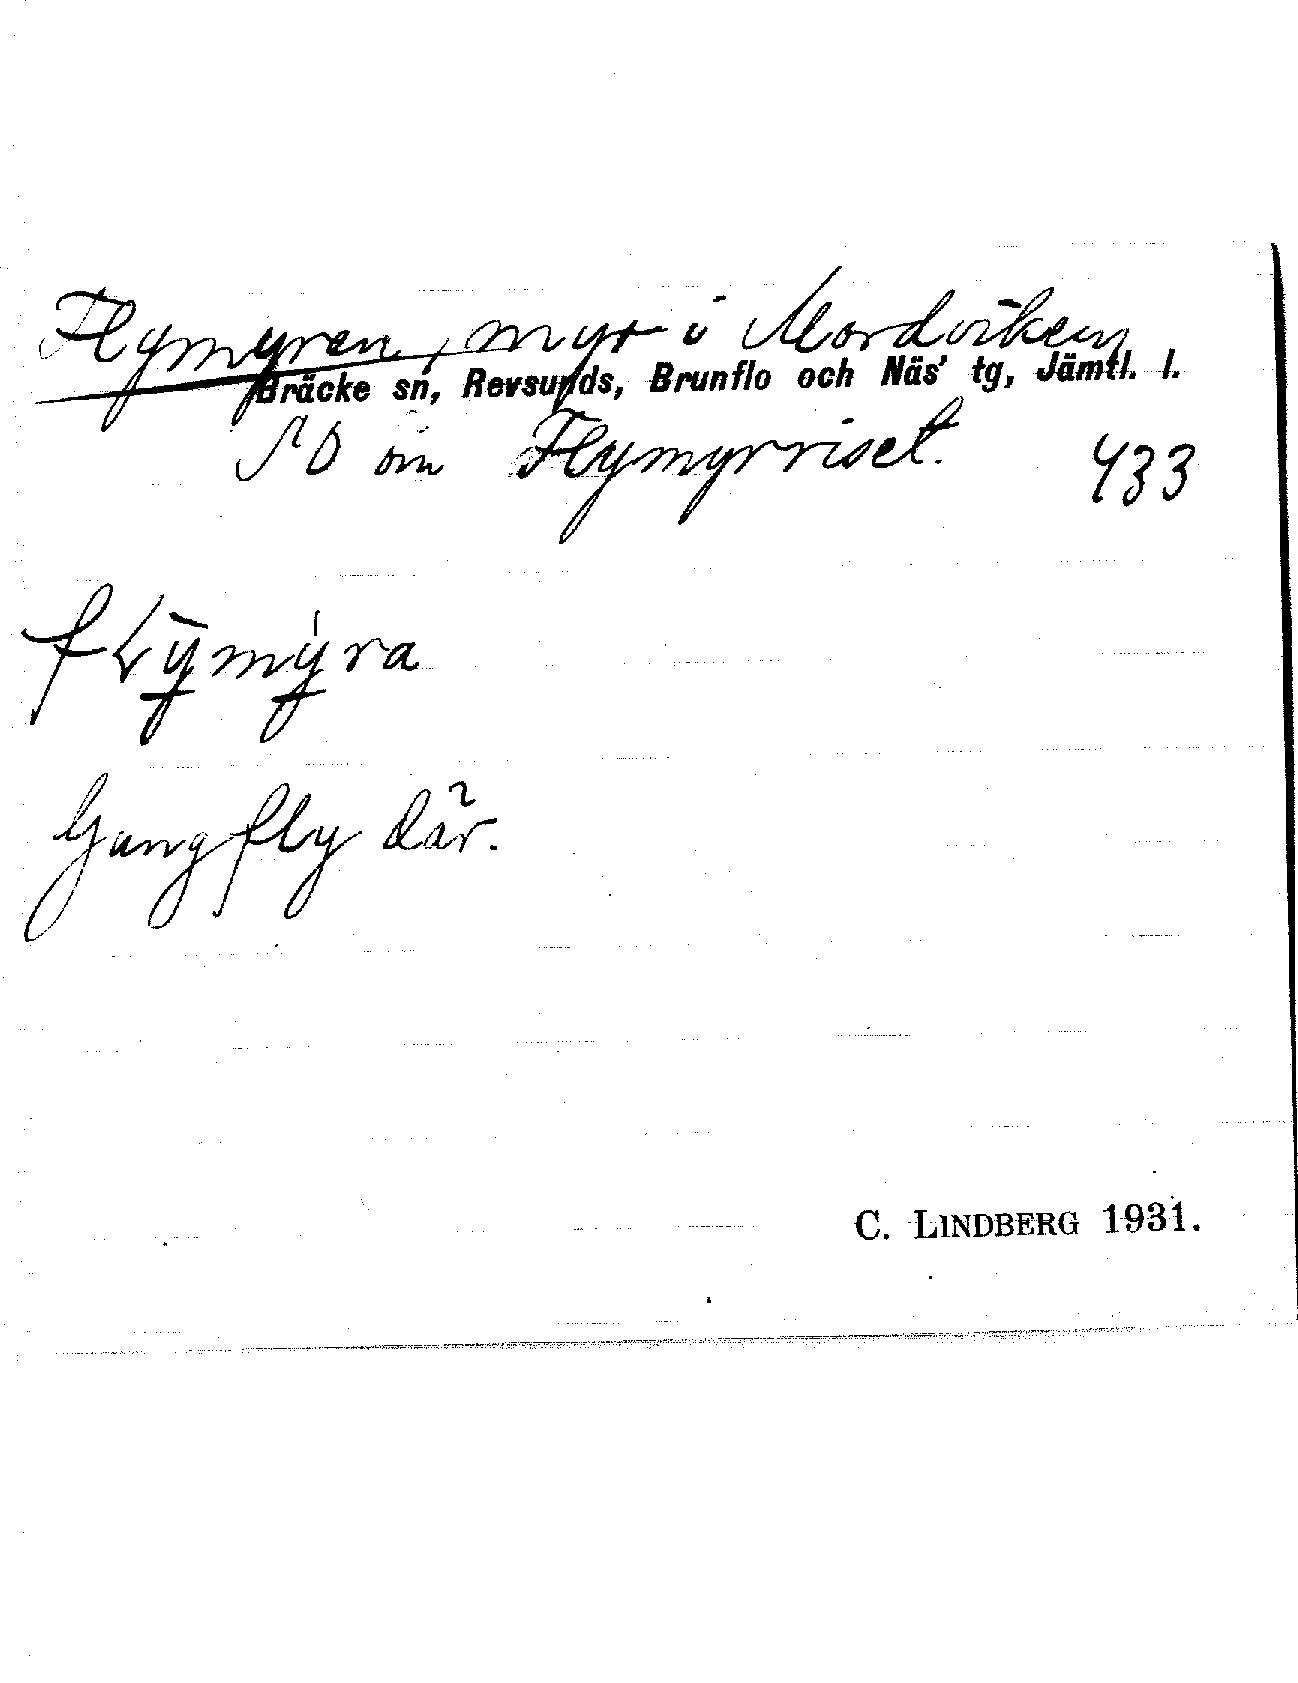 Flymyren, myr i Mordviken
Bräcke sn, Revsunds, Brunflo och Näs' tg, Jämtl. l.
SO om Flymyrriset. 433
fLȳ̲my̲̍ra
Gungfly där.
C. LINDBERG 1931.